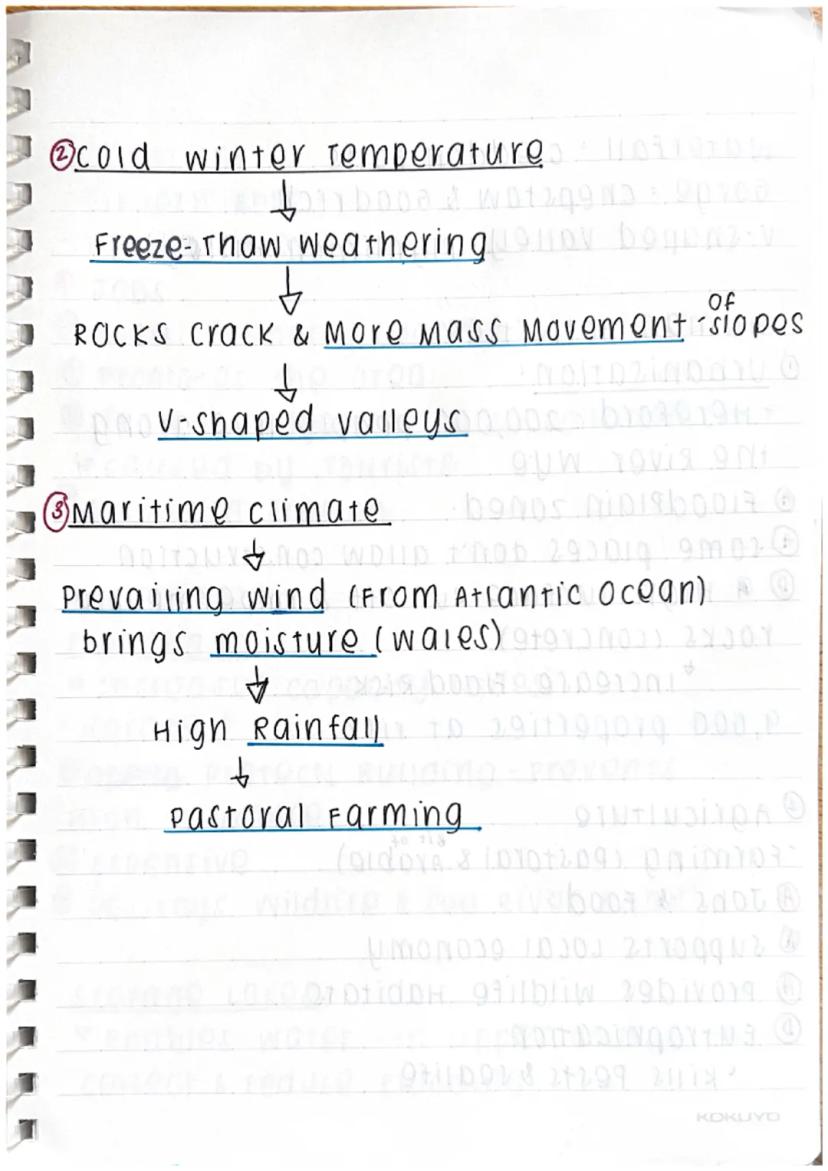 ②Cold winter Temperature
↓
Freeze-Thaw weathering
↓
ROCKS Crack & More Mass Movement of slopes
↓
V-shaped valleys
③Maritime climate
↓
Prevailing wind (From Atlantic Ocean)
brings moisture (wales)
↓
High Rainfall
↓
Pastoral Farming
KOKUYO